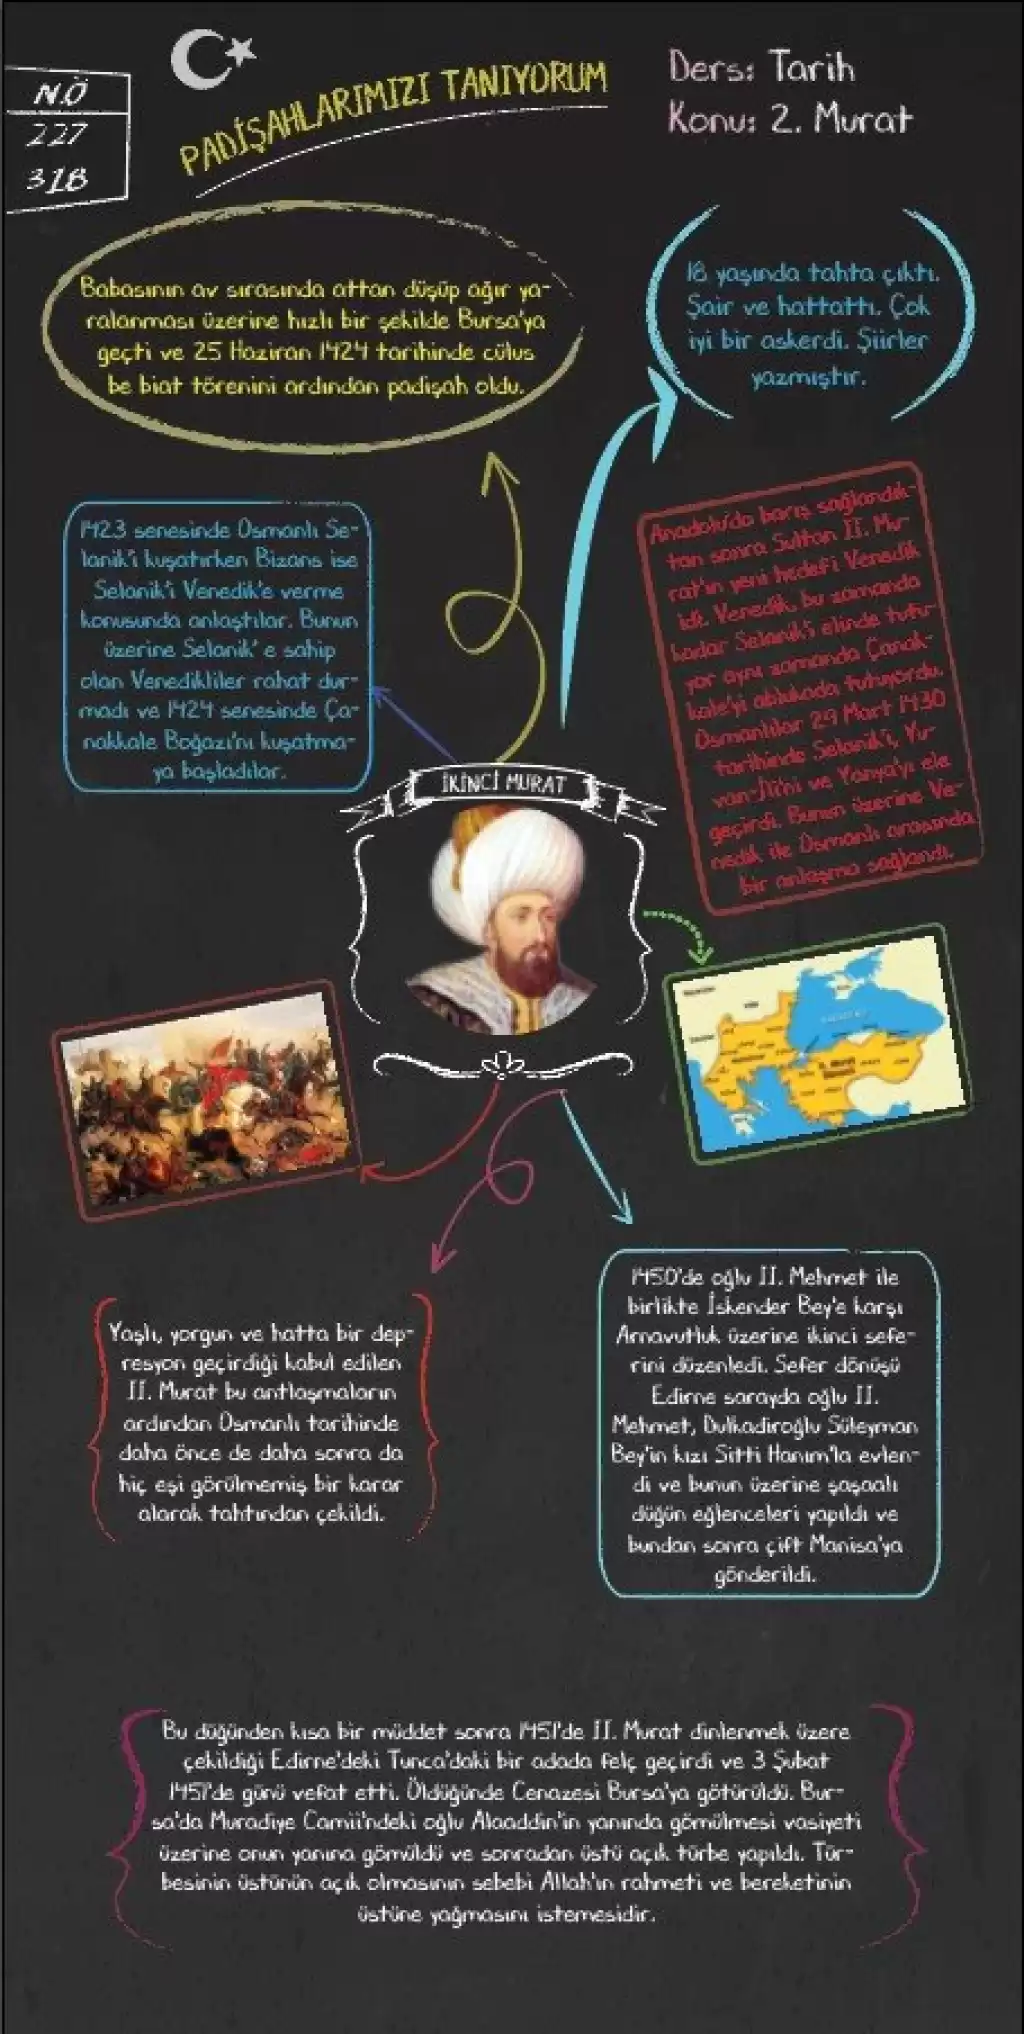 N.Ö
227
318
PADİŞAHLARIMIZI TANIYORUM
Ders: Tarih
Konu: 2. Murat
Babasının av sırasında attan düşüp ağır ya-
ralanması üzerine hızlı bir şekilde Bursa'ya
geçti ve 25 Haziran 1424 tarihinde cülus
be biat törenini ardından padişah oldu.
18 yaşında tahta çıktı.
Şair ve hattattı. Çok
iyi bir askerdi. Şiirler
yazmıştır.
1423 senesinde Osmanlı Se-
lanik'i kuşatırken Bizans ise
Selanik'i Venedik'e verme
konusunda anlaştılar. Bunun
üzerine Selanik' e sahip
olan Venedikliler rahat dur-
madı ve 1424 senesinde Ça-
nakkale Boğazı'nı kuşatma-
ya başladılar.
Anadolu'da barış sağlandık-
tan sonra Sultan II. Mu-
rat'ın yeni hedefi Venedik
idi. Venedik, bu zamanda
kadar Selanik'i elinde tutu-
yor aynı zamanda Çanak-
kale'yi ablukada tutuyordu.
Osmanlılar 29 Mart 1430
tarihinde Selanik'i, Yu-
van-İli'ni ve Yanya'yı ele
geçirdi. Bunun üzerine Ve-
nedik ile Osmanlı arasında
bir anlaşma sağlandı.
İKİNCİ MURAT
Yaşlı, yorgun ve hatta bir dep-
resyon geçirdiği kabul edilen
II. Murat bu antlaşmaların
ardından Osmanlı tarihinde
daha önce de daha sonra da
hiç eşi görülmemiş bir karar
alarak tahtından çekildi.
1450'de oğlu II. Mehmet ile
birlikte İskender Bey'e karşı
Arnavutluk üzerine ikinci sefe-
rini düzenledi. Sefer dönüşü
Edirne sarayda oğlu II.
Mehmet, Dulkadiroğlu Süleyman
Bey'in kızı Sitti Hanım'la evlen-
di ve bunun üzerine şaşaalı
düğün eğlenceleri yapıldı ve
bundan sonra çift Manisa'ya
gönderildi.
Bu düğünden kısa bir müddet sonra 1451'de II. Murat dinlenmek üzere
çekildiği Edirne'deki Tunca'daki bir adada felç geçirdi ve 3 Şubat
1451'de günü vefat etti. Öldüğünde Cenazesi Bursa'ya götürüldü. Bur-
sa'da Muradiye Camii'ndeki oğlu Alaaddin'in yanında gömülmesi vasiyeti
üzerine onun yanına gömüldü ve sonradan üstü açık türbe yapıldı. Tür-
besinin üstünün açık olmasının sebebi Allah'ın rahmeti ve bereketinin
üstüne yağmasını istemesidir.